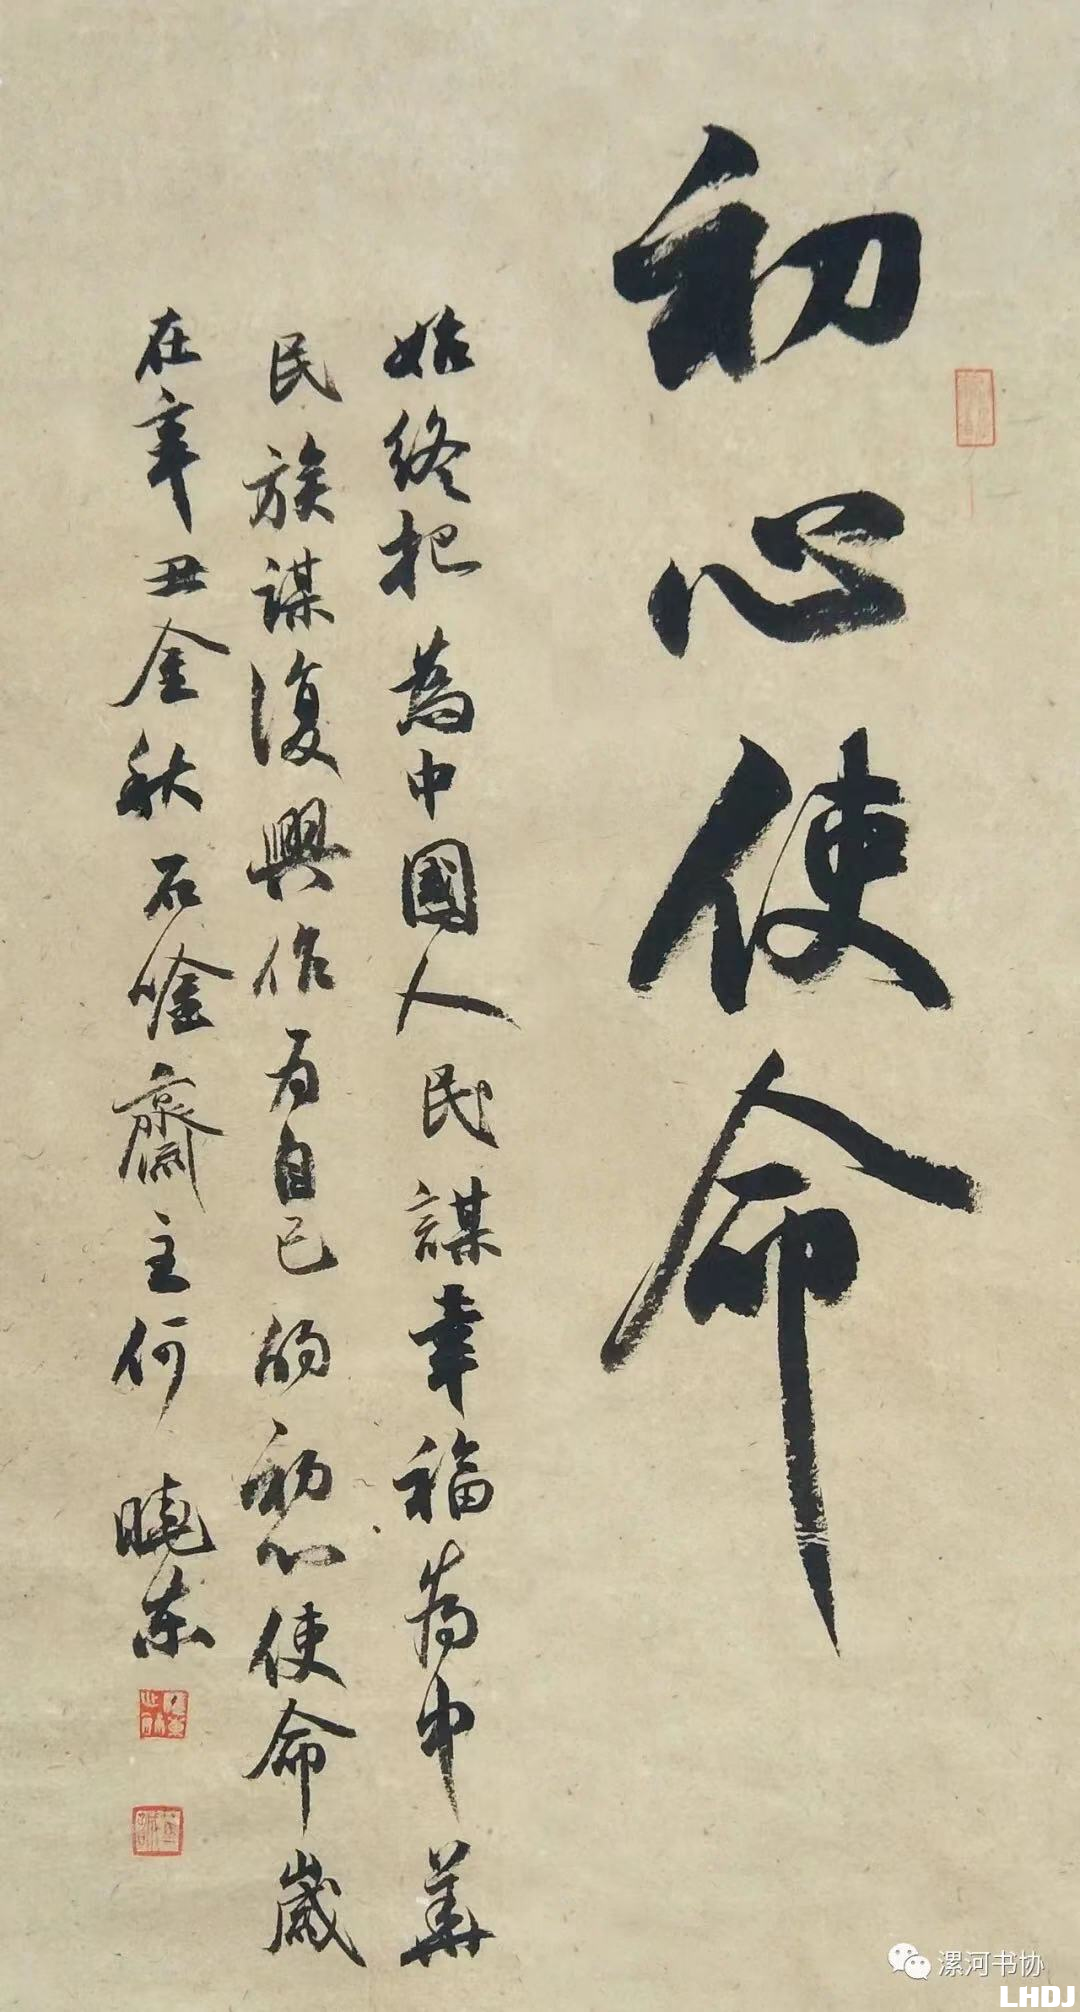 初心使命
始终把為中國人民謀幸福為中華
民族谋復興作为自己的初心使命歲
在辛丑金秋石唫齋主何曉东
漯河书协
LHDJ